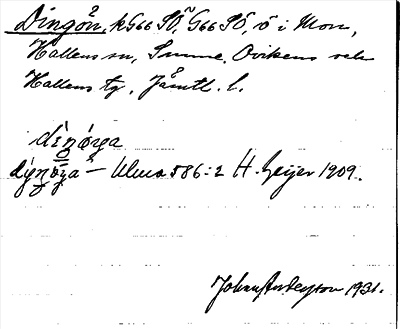 Dingön, kG66 SÖ, G66 SO, ö i Mon,
Hallens sn, Sunne, Ovikens och
Hallens tg, Jämtl. l.
dìŋǫŋa
dýŋǫŋa – Ulma 586:2 H. Geijer 1909.
Johan Anderson 1931.